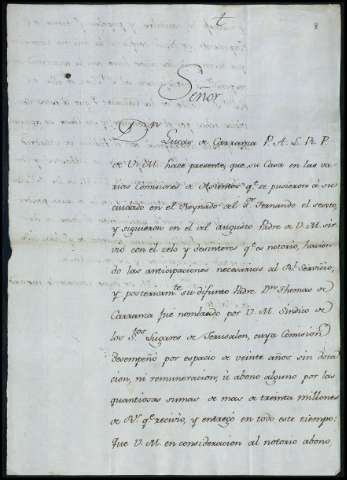 t
8
Señor
Dⁿ Lucas de Carranza P. A. L. R. P.
de V. M. hace presente, que su Casa en las va
rias Comisiones de Asientos qᵉ se pusieron à su
cuidado en el Reynado del Sʳ Fernando el sexto,
y siguieron en el del augusto Padre de V. M. sir
vio con el zelo y desinteres qᵉ es notorio, havien
do las anticipaciones necesarias al Rˡ Servicio;
y posteriormᵗᵉ su difunto Padre Dⁿ Thomas de
Carranza fue nombrado por V. M. Sindico de
los Sᵗᵒˢ Lugares de Jerusalen, cuya Comision
desempeño por espacio de veinte años sin dota
cion, ni remuneracion, ni abono alguno por las
quantiosas sumas de mas de treinta millones
de Rˢ qᵉ recivio, y entregò en todo este tiempo:
Que V. M. en consideracion al notorio abono,